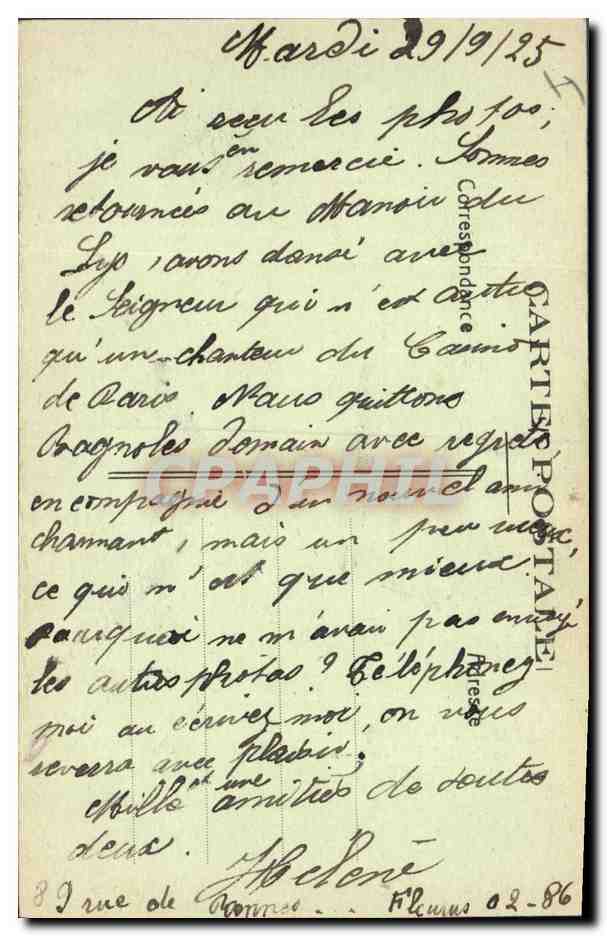 Mardi 29/9/25
Ai reçu les photos,
je vous en remercie. Sommes
retournées au Manoir du
Lys, avons dansé avec
le Seigneur qui n'est autre
qu'un chanteur du Casino
de Paris. Nous quittons
Bagnoles demain avec regret
en compagnie d'un nouvel ami
charmant, mais un peu vieux,
ce qui n'est que mieux
Pourquoi ne m'avoir pas envoyé
les autres photos? Téléphonez
moi ou écrivez moi, on vous
reverra avec plaisir.
Mille et une amitiés de toutes
deux.
Hélène
89 rue de Rennes... Fleurus 02-86
CARTE POSTALE
Correspondance
Adresse
CPAPHIL